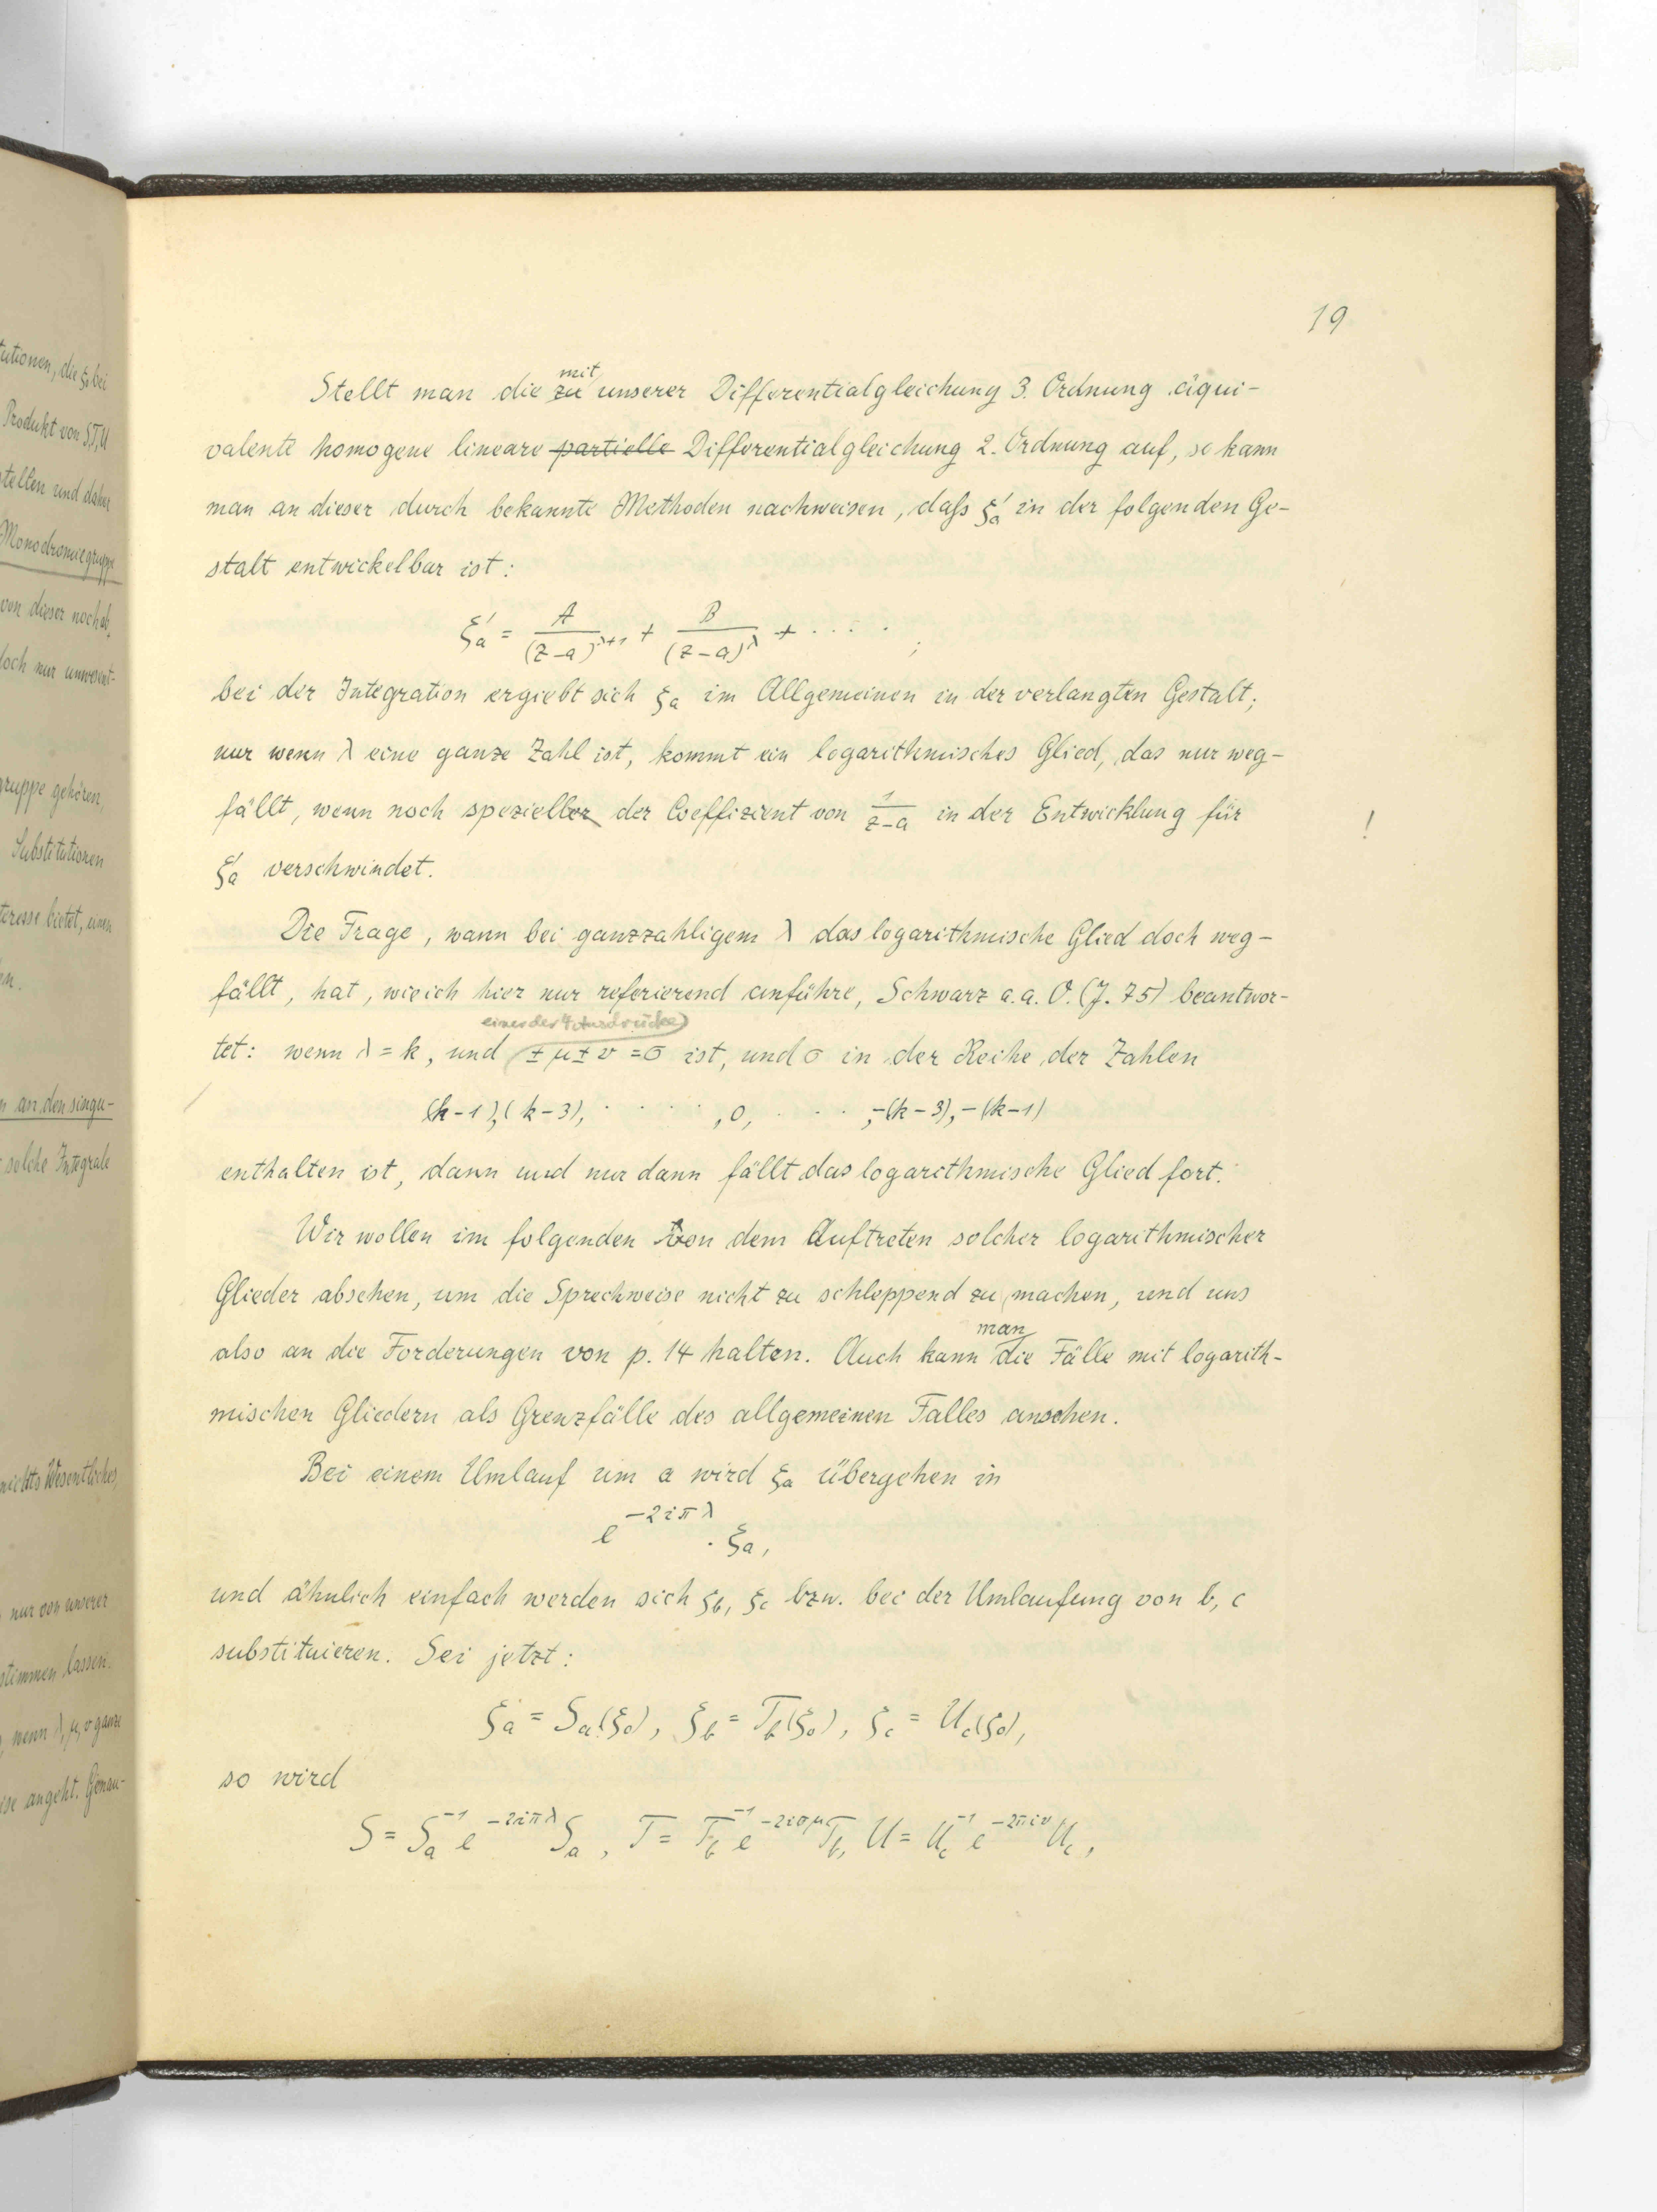 tutionen, die ξ bei
Produkt von S,T,U
stellten und daher
Monodromiegruppe
von dieser noch ab,
doch nur unwesent-
gruppe gehören,
Substitutionen
teresse bietet, einen
en.
n an den singu-
solche Integrale
nichts Wesentliches,
nur von unserer
stimmen lassen.
, wenn λ, μ, ν ganze
ise angeht. Genau-
19
mit
Stellt man die zu unserer Differentialgleichung 3. Ordnung äqui-
valente homogene lineare partielle Differentialgleichung 2. Ordnung auf, so kann
man an dieser durch bekannte Methoden nachweisen, daſs ξ'ₐ in der folgenden Ge-
stalt entwickelbar ist:
ξ'ₐ = A/(z-a)^{λ+1} + B/(z-a)^λ + · · · · ;
bei der Integration ergiebt sich ξₐ im Allgemeinen in der verlangten Gestalt;
nur wenn λ eine ganze Zahl ist, kommt ein logarithmisches Glied, das nur weg-
fällt, wenn noch spezieller der Coeffizient von 1/(z-a) in der Entwicklung für !
ξ'ₐ verschwindet.
Die Frage, wann bei ganzzahligem λ das logarithmische Glied doch weg-
fällt, hat, wie ich hier nur referierend anführe, Schwarz a. a. O. (J. 75) beantwor-
einer der 4 Ausdrücke
tet: wenn λ = k, und ± μ ± ν = σ ist, und σ in der Reihe der Zahlen
(k-1), (k-3), · · · · , 0, · · · , -(k-3), -(k-1)
enthalten ist, dann und nur dann fällt das logarithmische Glied fort.
Wir wollen im folgenden von dem Auftreten solcher logarithmischer
Glieder absehen, um die Sprechweise nicht zu schleppend zu machen, und uns
man
also an die Forderungen von p. 14 halten. Auch kann die Fälle mit logarith-
mischen Gliedern als Grenzfälle des allgemeinen Falles ansehen.
Bei einem Umlauf um a wird ξₐ übergehen in
e^{-2iπλ} · ξₐ,
und ähnlich einfach werden sich ξ_b, ξ_c bzw. bei der Umlaufung von b, c
substituieren. Sei jetzt:
ξₐ = Sₐ(ξ₀), ξ_b = T_b(ξ₀), ξ_c = U_c(ξ₀),
so wird
S = Sₐ⁻¹ e^{-2iπλ} Sₐ, T = T_b⁻¹ e^{-2iπμ} T_b, U = U_c⁻¹ e^{-2πiν} U_c,